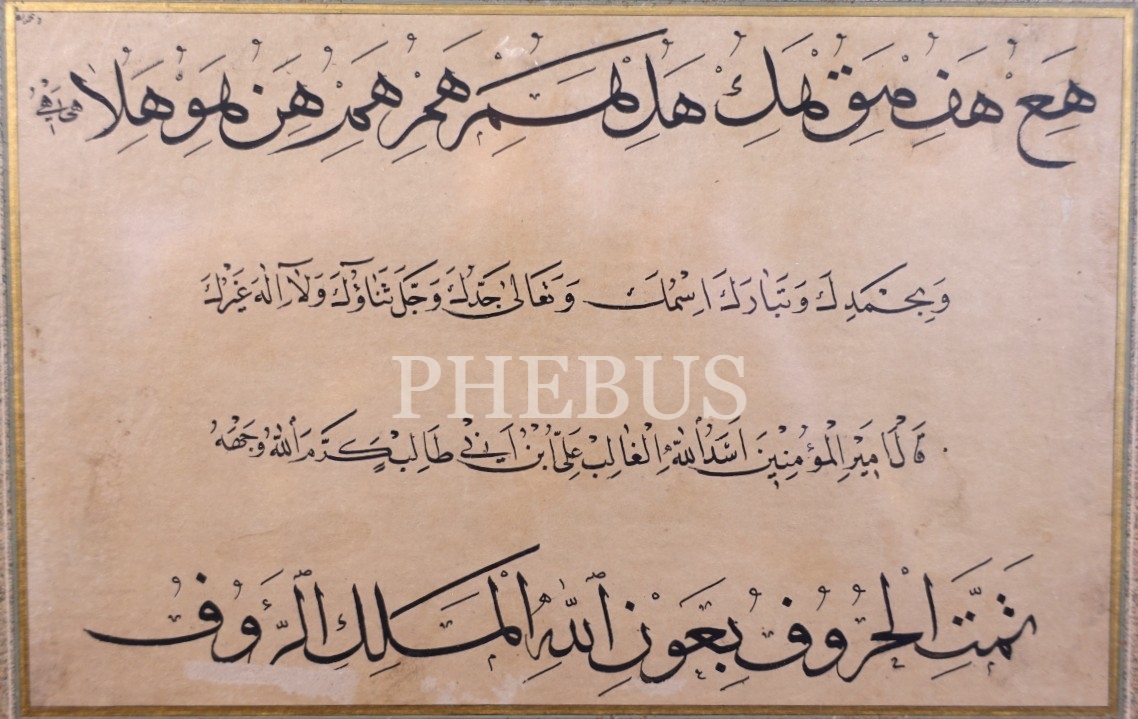 هع هف هق هك هل هم هن هو هلا
وَبِحَمْدِكَ وَتَبَارَكَ اسْمُكَ وَتَعَالىٰ جَدُّكَ وَجَلَّ ثَنَاؤُكَ وَلَا اِلٰهَ غَيْرُكَ
PHEBUS
قَالَ اَمِيرُ الْمُؤْمِنِينَ اَسَدُ اللّٰهِ الْغَالِبْ عَلِيُّ ابْنُ اَبِي طَالِبْ كَرَّمَ اللّٰهُ وَجْهَهُ
تَمَّتِ الْحُرُوفُ بِعَوْنِ اللّٰهِ الْمَلِكِ الرَّؤُفُ